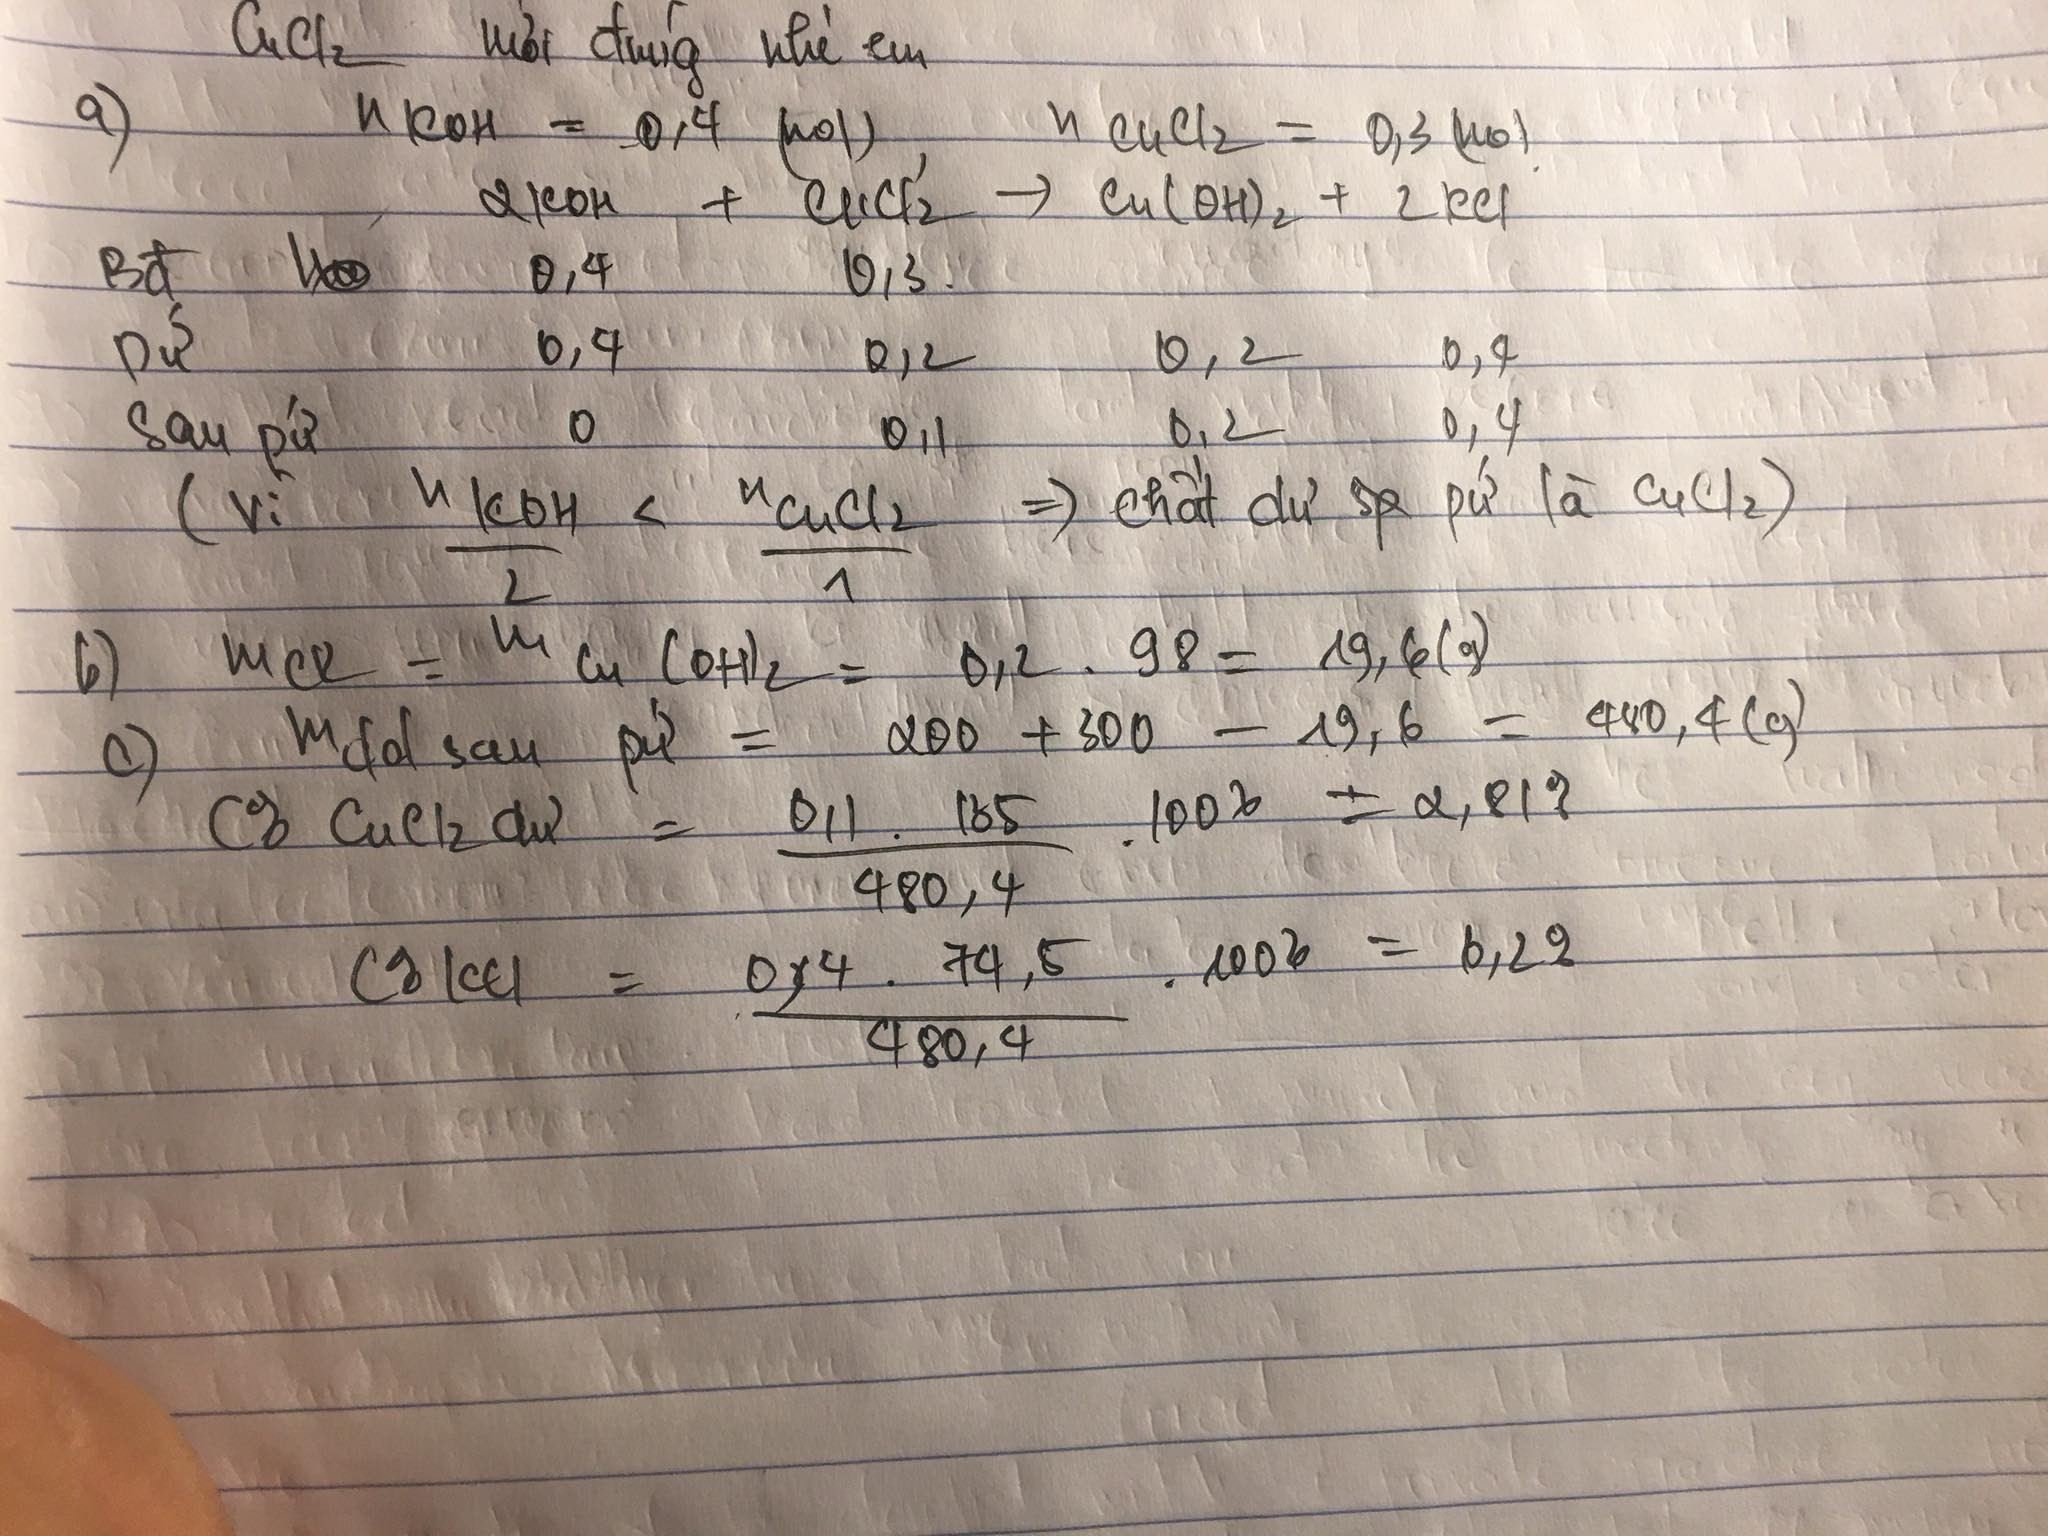 CuCl2 mới đúng nhé em
a) nKOH = 0,4 (mol) nCuCl2 = 0,3 (mol)
2KOH + CuCl2 → Cu(OH)2 + 2KCl
Bđ 0,4 0,3
Pứ 0,4 0,2 0,2 0,4
Sau pứ 0 0,1 0,2 0,4
(Vì nKOH/2 < nCuCl2/1 => chất dư sp pứ là CuCl2)
b) mCR = mCu(OH)2 = 0,2 . 98 = 19,6(g)
c) mdd sau pứ = 200 + 300 - 19,6 = 480,4(g)
C% CuCl2 dư = 0,1 . 135 / 480,4 . 100% = 2,81%
C% KCl = 0,4 . 74,5 / 480,4 . 100% = 6,2%